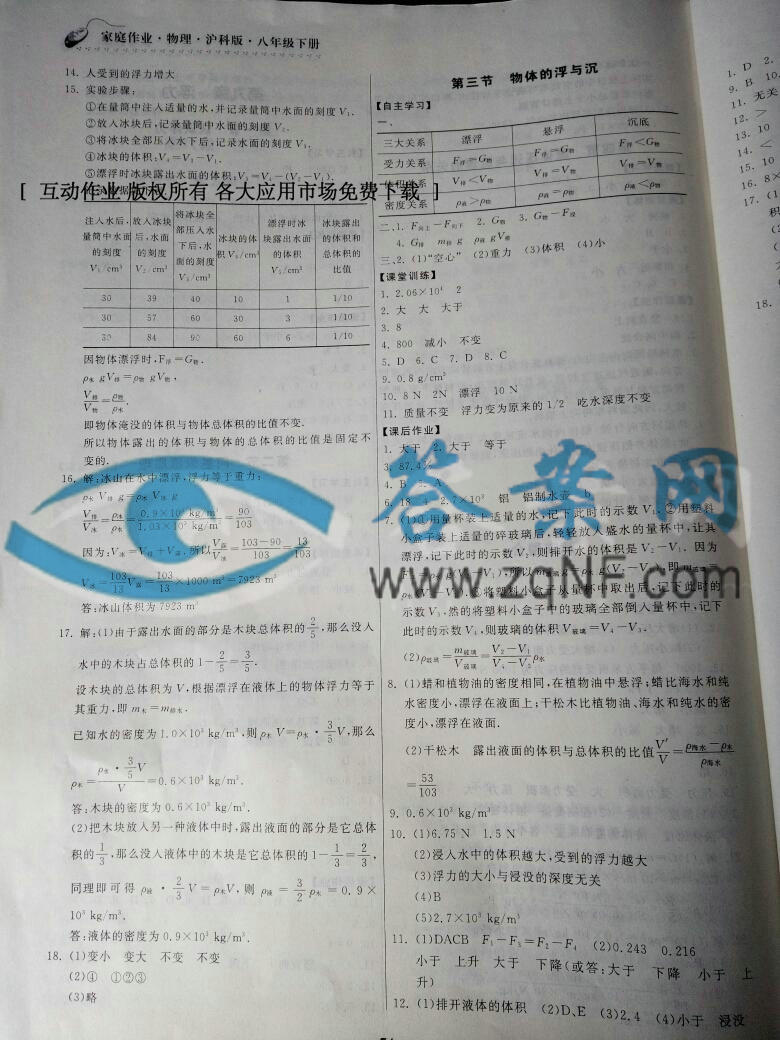 家庭作业·物理·沪科版·八年级下册
14. 人受到的浮力增大
15. 实验步骤:
①在量筒中注入适量的水,并记录量筒中水面的刻度 V₁.
②放入冰块后,记录量筒中水面的刻度 V₂.
③将冰块全部压入水下后,记录水面的刻度 V₃.
④冰块的体积:V₄=V₃-V₁.
⑤漂浮时冰块露出水面的体积:V₅=V₄-(V₂-V₁).
[ 互动作业 版权所有 各大应用市场免费下载 ]
注入水后,量筒中水面的刻度 V₁/cm³ 放入冰块后,水面的刻度 V₂/cm³ 将冰块全部压入水下后,水面的刻度 V₃/cm³ 冰块的体积 V₄/cm³ 漂浮时冰块露出水面的体积 V₅/cm³ 冰块露出的体积和总体积的比值
30 39 40 10 1 1/10
30 57 60 30 3 1/10
30 84 90 60 6 1/10
因物体漂浮时,F浮=G物.
ρ水 gV排=ρ物 gV物,
V排/V物=ρ物/ρ水.
即物体淹没的体积与物体总体积的比值不变.
所以物体露出的体积与物体的总体积的比值是固定不
变的.
16. 解:冰山在水中漂浮,浮力等于重力:
ρ水 V排 g=ρ冰 V冰 g
V排/V冰=ρ冰/ρ水=0.9×10³ kg/m³/1.03×10³ kg/m³=90/103
因为:V冰=V排+V露,所以V露/V冰=103-90/103=13/103
V冰=103/13 V露=103/13×1000 m³=7923 m³
答:冰山体积为 7923 m³
17. 解:(1)由于露出水面的部分是木块总体积的2/5,那么没入
水中的木块占总体积的 1-2/5=3/5.
设木块的总体积为 V,根据漂浮在液体上的物体浮力等于
其重力,即 m木=m排水.
已知水的密度为 1.0×10³ kg/m³,则ρ木 V=ρ水·3/5V,那么
ρ木=ρ水·3/5V/V=0.6×10³ kg/m³.
答:木块的密度为 0.6×10³ kg/m³.
(2)把木块放入另一种液体中时,露出液面的部分是它总体
积的1/3,那么没入液体中的木块是它总体积的 1-1/3=2/3,
同理即可得 ρ液·2/3 V=ρ木V,则 ρ液=3/2 ρ木=0.9×
10³ kg/m³.
答:液体的密度为 0.9×10³ kg/m³.
18. (1)变小 变大 不变 不变
(2)④ ①②③
(3)略
第三节 物体的浮与沉
【自主学习】
一、
三大关系 漂浮 悬浮 沉底
受力关系 F浮=G物 F浮=G物 F浮<G物
体积关系 V排<V物 V排=V物 V排=V物
密度关系 ρ液>ρ物 ρ液=ρ物 ρ液<ρ物
二、1. F向上-F向下 2. G物 3. G物-F浮
4. G排 m排 g ρ液 gV排
三、2. (1)“空心” (2)重力 (3)体积 (4)小
【课堂训练】
1. 2.06×10⁴ 2
2. 大 大 大于
3. 8
4. 800 减小 不变
5. D 6. C 7. D 8. C
9. 0.8 g/cm³
10. 8 N 2N 漂浮 10 N
11. 质量不变 浮力变为原来的 1/2 吃水深度不变
【课后作业】
1. 大于 2. 大于 等于
3. 87.4%
4. B 5. A
6. 18 4 2.7×10³ 铝 铝制水壶 b
7. (1)①用量杯装上适量的水,记下此时的示数 V₁.②用塑料
小盒子装上适量的碎玻璃后,轻轻放入盛水的量杯中,让其
漂浮,记下此时的示数 V₂,则排开水的体积是 V₂-V₁. 因为
③将塑料小盒子从量杯中取出后,记下此时的
示数 V₃,然的将塑料小盒子中的玻璃全部倒入量杯中,记下
此时的示数 V₄,则玻璃的体积 V玻璃=V₄-V₃.
(2)ρ玻璃=m玻璃/V玻璃=V₂-V₁/V₄-V₃ρ水
8. (1)蜡和植物油的密度相同,在植物油中悬浮;蜡比海水和纯
水密度小,漂浮在液面上;干松木比植物油、海水和纯水的密
度小,漂浮在液面.
(2)干松木 露出液面的体积与总体积的比值V′/V=ρ海水-ρ木/ρ海水
=53/103
9. 0.6×10³ kg/m³
10. (1)6.75 N 1.5 N
(2)浸入水中的体积越大,受到的浮力越大
(3)浮力的大小与浸没的深度无关
(4)B
(5)2.7×10³ kg/m³
11. (1)DACB F₁-F₃=F₂-F₄ (2)0.243 0.216
小于 上升 大于 下降(或答:大于 下降 小于 上
升)
12. (1)排开液体的体积 (2)D、E (3)2.4 (4)小于 浸没
1. D 2.
9. B 10.
11. 无关
12. >
13. 10
14. <
15. 10
16. 8×
17. (1
积
18.
答案网
www.zqNF.com